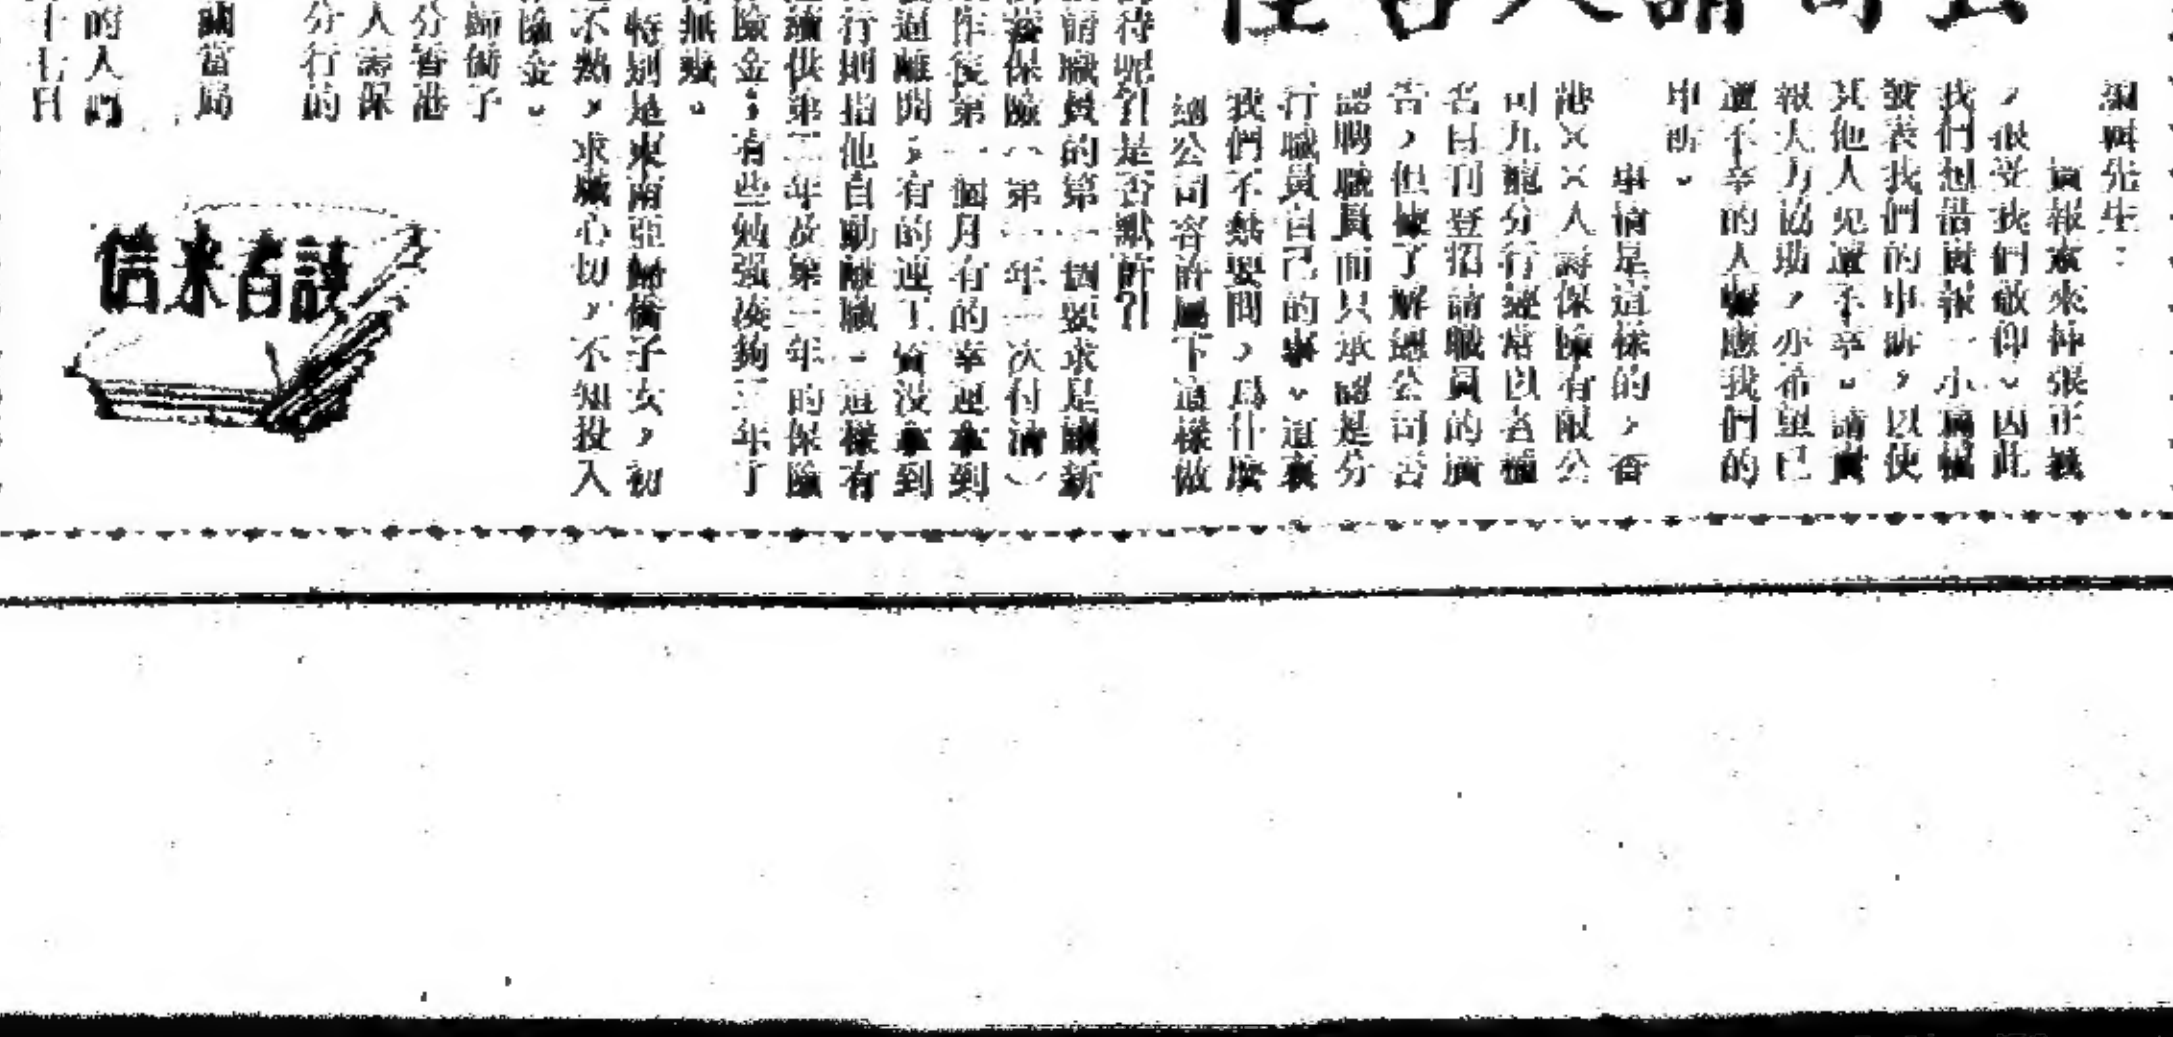 公司請人古怪
編輯先生：
貴報素來伸張正義
，很受我們敬仰。因此
我們想借貴報一小篇幅
發表我們的申訴，以使
其他人免遭不幸。請貴
報大力協助，亦希望已
遭不幸的人響應我們的
申訴。
事情是這樣的，香
港××人壽保險有限公
司九龍分行經常以各種
名目刊登招請職員的廣
告，但據了解總公司否
認聘職員而只承認是分
行職員自己的事。這裏
我們不禁要問，爲什麼
總公司容許屬下這樣做
待呢？！是否默許？！
請職員的第一個要求是讓新
保險（第一年一次付清）
作後第一個月有的幸運拿到
過離開；有的連工資沒拿到
行則指他自動離職。這樣有
續供第二年及第三年的保險
險金；有些勉强湊夠三年了
無幾。
特別是東南亞歸僑子女，初
不熟，求職心切，不知投入
險金。
歸僑子
分香港
人壽保
分行的
當局
的人們
十七日
讀者來信